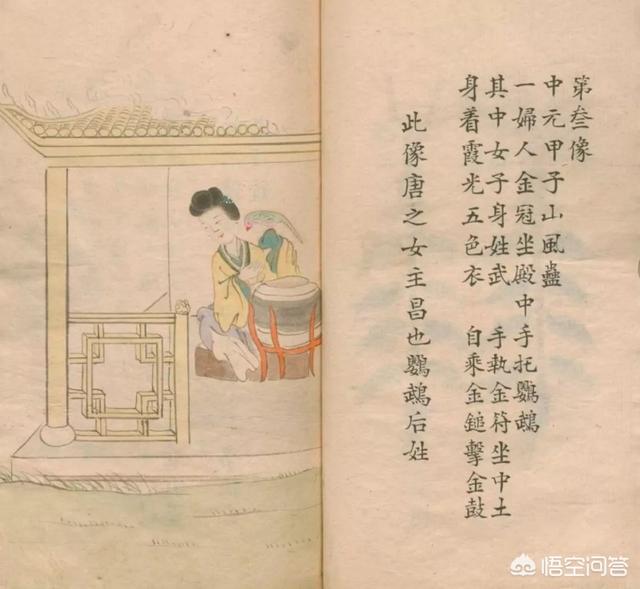 第叁像
中元甲子山風蠱
一婦人金冠坐殿中手托鸚鵡
其中女子身姓武 手執金符坐中土
身着霞光五色衣 自乘金鎚擊金鼓
此像唐之女主昌也鸚鵡后姓
悟空问答